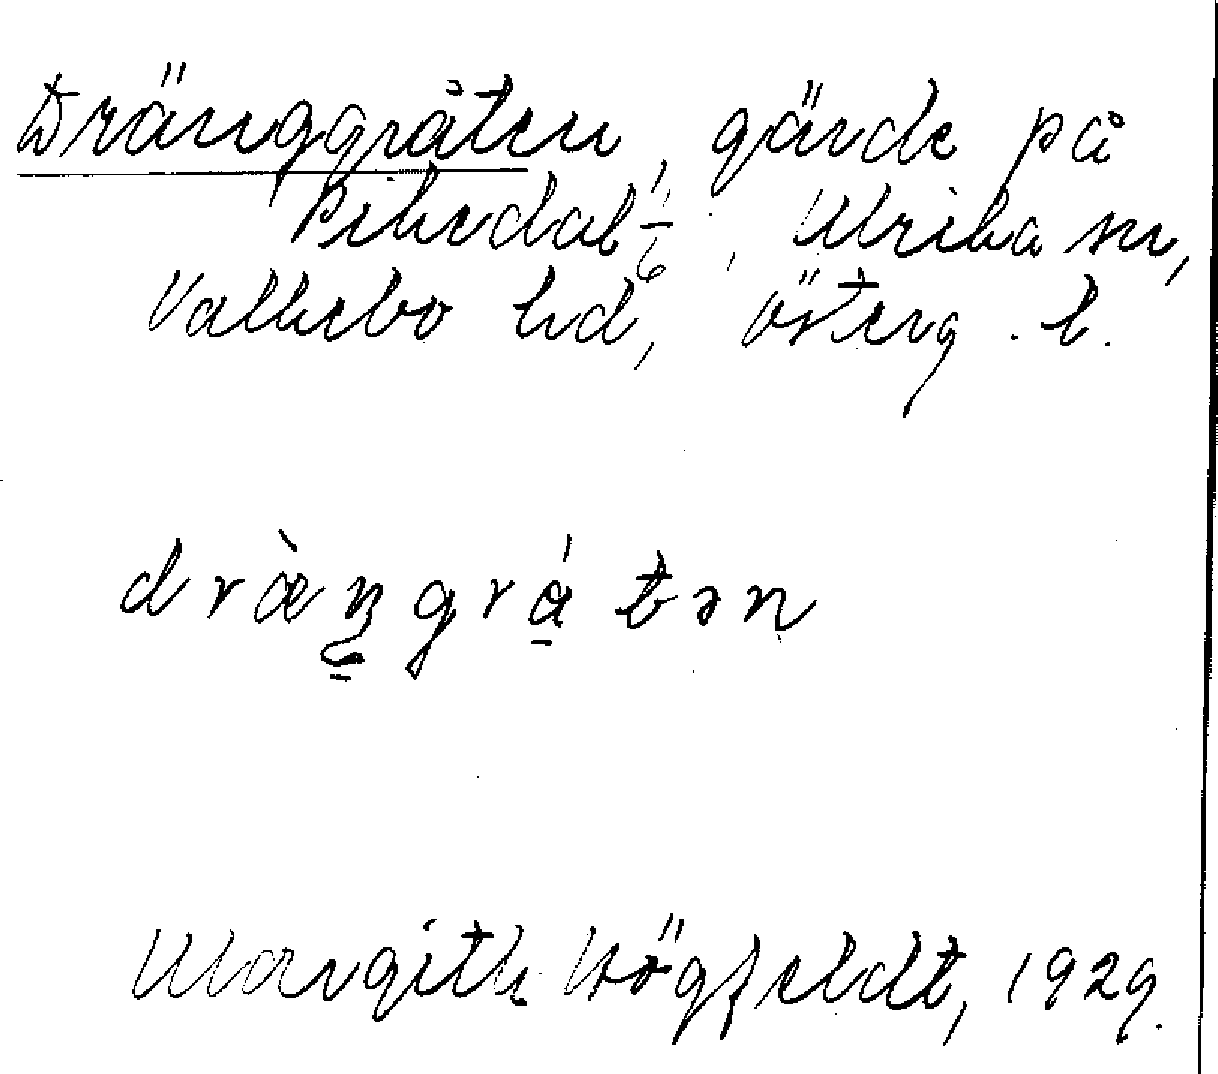 Dränggråten, gärde på
Pikedal 1/6, Ulrika sn,
Valkebo hd, Österg. l.
dràŋgrá̱tən
Margith Högfeldt, 1929.